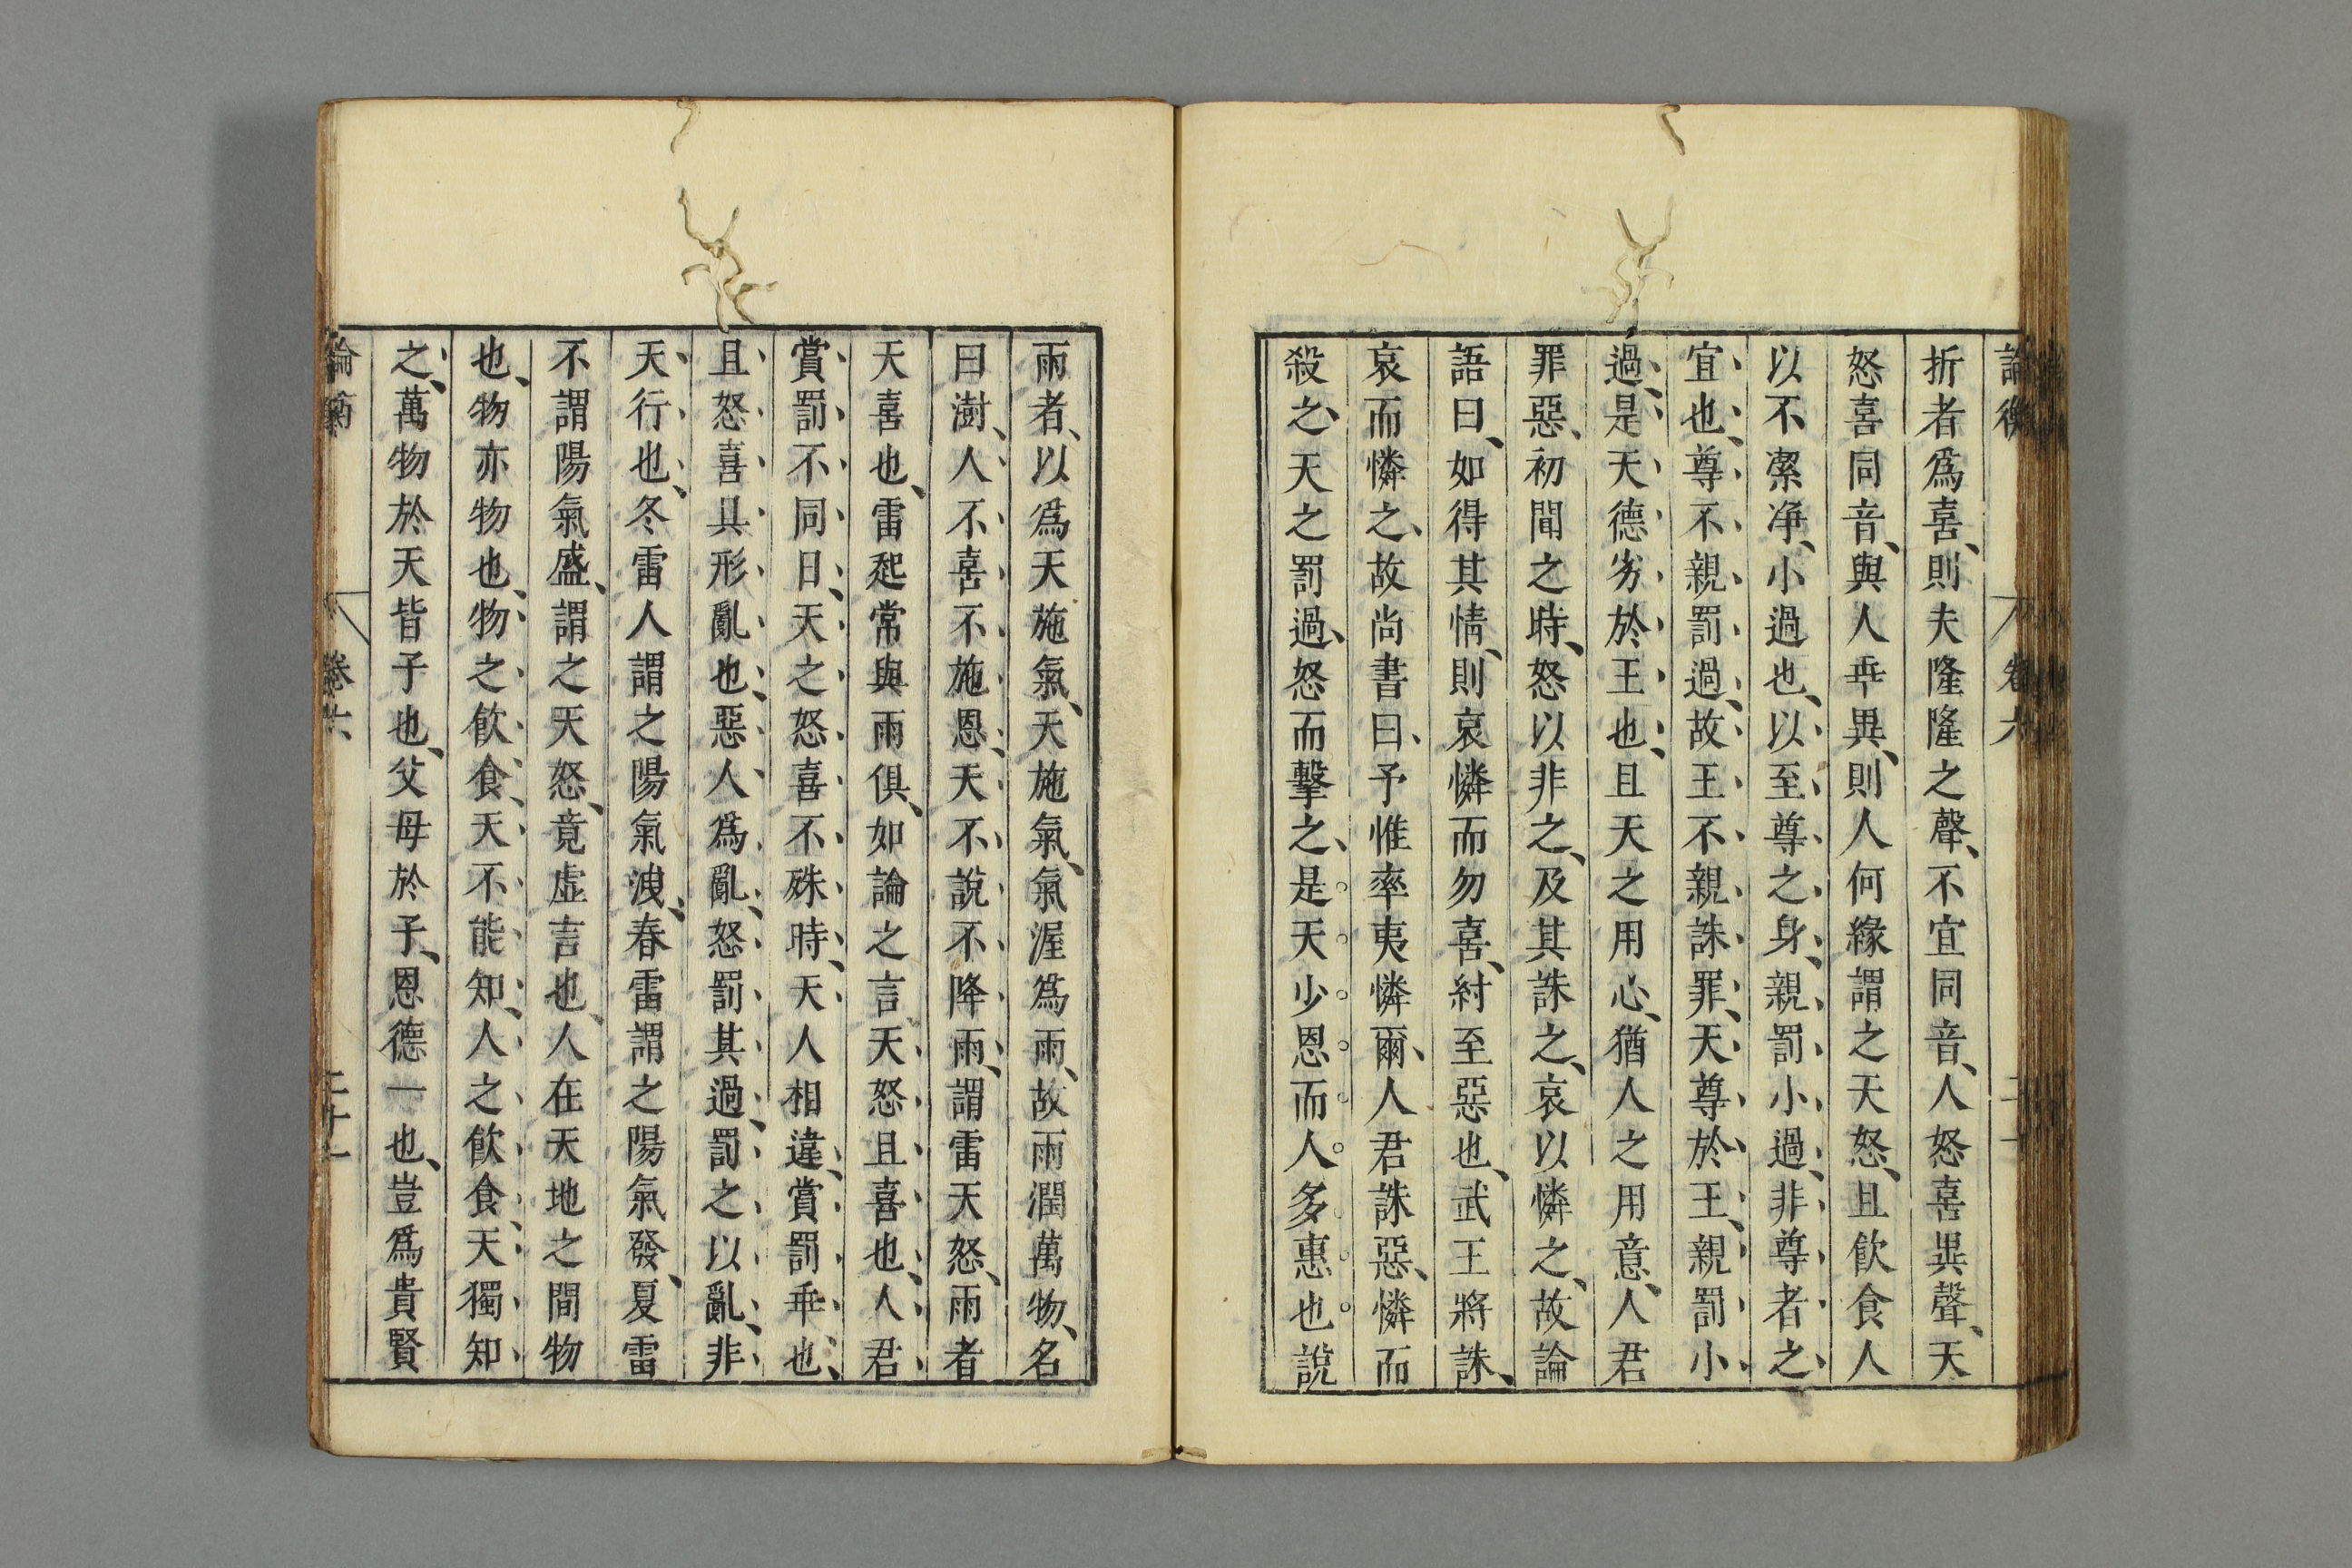 論衡 卷六
折者爲喜、則夫隆隆之聲、不宜同音、人怒喜異聲、天
怒喜同音、與人乖異、則人何緣謂之天怒、且飮食人
以不潔净、小過也、以至尊之身、親罰小過、非尊者之
宜也、尊不親罰過、故王不親誅罪、天尊於王、親罰小
過、是天德劣於王也、且天之用心、猶人之用意、人君
罪惡、初聞之時、怒以非之、及其誅之、哀以憐之、故論
語曰、如得其情、則哀憐而勿喜、紂至惡也、武王將誅、
哀而憐之、故尚書曰、予惟率夷憐爾、人君誅惡、憐而
殺之、天之罰過、怒而擊之、是天少恩而人多惠也說
雨者、以爲天施氣、天施氣、氣渥爲雨、故雨潤萬物、名
曰澍、人不喜不施恩、天不說不降雨、謂雷天怒、雨者
天喜也、雷起常與雨俱、如論之言、天怒且喜也、人君
賞罰不同日、天之怒喜不殊時、天人相違、賞罰乖也、
且怒喜具形亂也、惡人爲亂、怒罰其過、罰之以亂、非
天行也、冬雷人謂之陽氣洩、春雷謂之陽氣發、夏雷
不謂陽氣盛、謂之天怒、竟虛言也、人在天地之間物
也、物亦物也、物之飮食、天不能知、人之飮食、天獨知
之、萬物於天皆子也、父母於子、恩德一也、豈爲貴賢
論衡 卷六